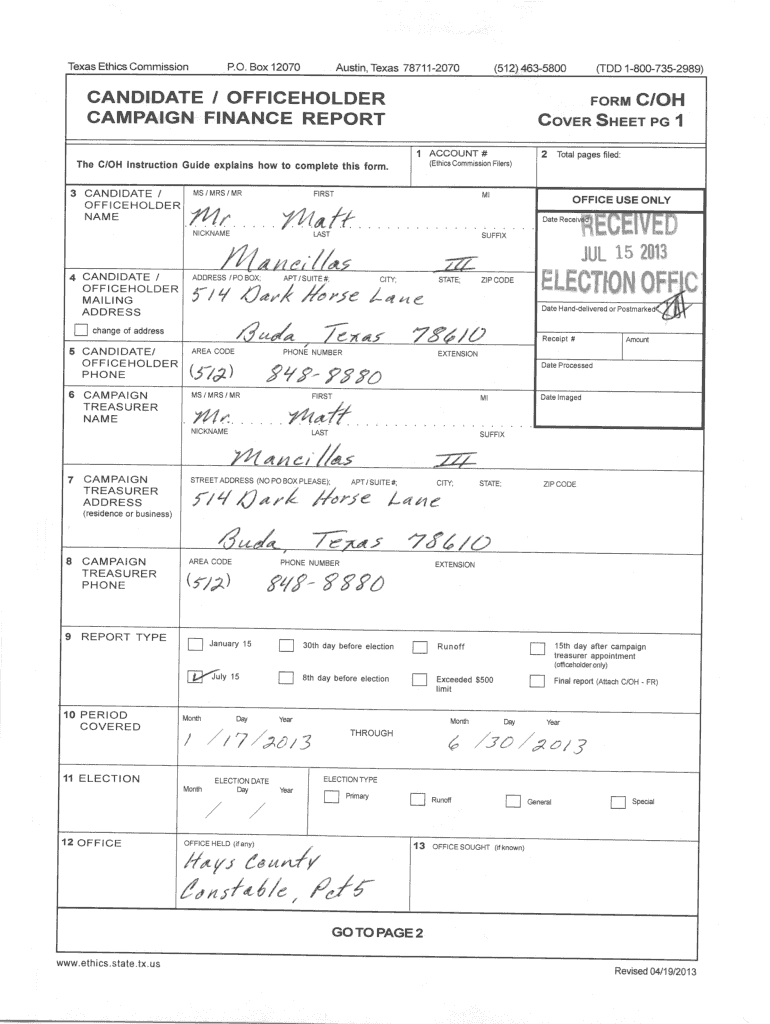 Texas Ethics Commission P.O. Box 12070 Austin, Texas 78711-2070 (512) 463-5800 (TDD 1-800-735-2989)
CANDIDATE / OFFICEHOLDER
CAMPAIGN FINANCE REPORT
FORM C/OH
COVER SHEET PG 1
The C/OH Instruction Guide explains how to complete this form.
1 ACCOUNT #
(Ethics Commission Filers)
2 Total pages filed:
3 CANDIDATE /
OFFICEHOLDER
NAME
MS / MRS / MR FIRST MI
Mr. Matt
NICKNAME LAST SUFFIX
Mancillas III
OFFICE USE ONLY
Date Received
RECEIVED
JUL 15 2013
ELECTION OFFIC
Date Hand-delivered or Postmarked
Receipt # Amount
Date Processed
Date Imaged
4 CANDIDATE /
OFFICEHOLDER
MAILING
ADDRESS
change of address
ADDRESS / PO BOX; APT / SUITE #; CITY; STATE; ZIP CODE
514 Dark Horse Lane
Buda, Texas 78610
5 CANDIDATE/
OFFICEHOLDER
PHONE
AREA CODE PHONE NUMBER EXTENSION
(512) 848-8880
6 CAMPAIGN
TREASURER
NAME
MS / MRS / MR FIRST MI
Mr. Matt
NICKNAME LAST SUFFIX
Mancillas III
7 CAMPAIGN
TREASURER
ADDRESS
(residence or business)
STREET ADDRESS (NO PO BOX PLEASE); APT / SUITE #; CITY; STATE; ZIP CODE
514 Dark Horse Lane
Buda, Texas 78610
8 CAMPAIGN
TREASURER
PHONE
AREA CODE PHONE NUMBER EXTENSION
(512) 848-8880
9 REPORT TYPE
January 15 30th day before election Runoff 15th day after campaign
treasurer appointment
(officeholder only)
July 15 8th day before election Exceeded $500
limit
Final report (Attach C/OH - FR)
10 PERIOD
COVERED
Month Day Year Month Day Year
1 / 17 / 2013 THROUGH 6 / 30 / 2013
11 ELECTION
ELECTION DATE
Month Day Year
/ /
ELECTION TYPE
Primary Runoff General Special
12 OFFICE
OFFICE HELD (if any)
Hays County
Constable, Pct 5
13 OFFICE SOUGHT (if known)
GO TO PAGE 2
www.ethics.state.tx.us
Revised 04/19/2013